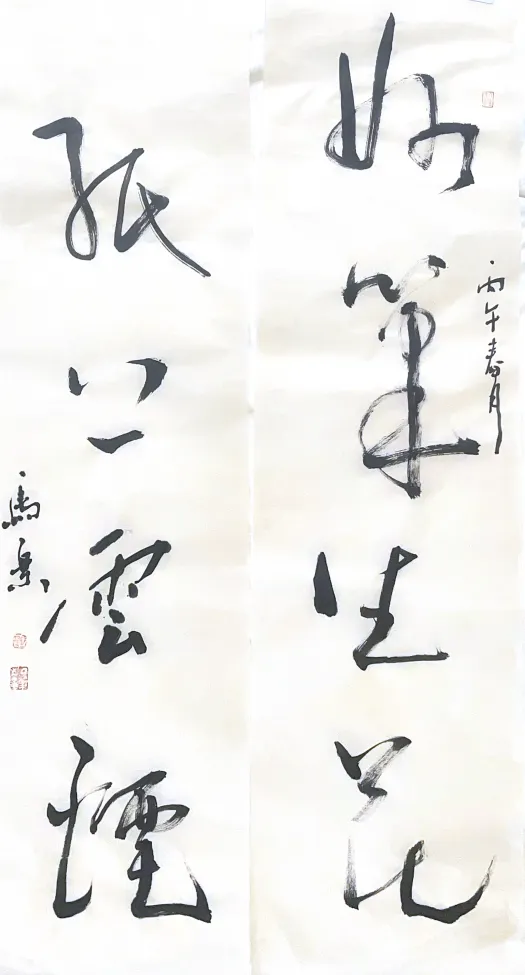 妙筆生花
丙午春月
紙上雲煙
馬